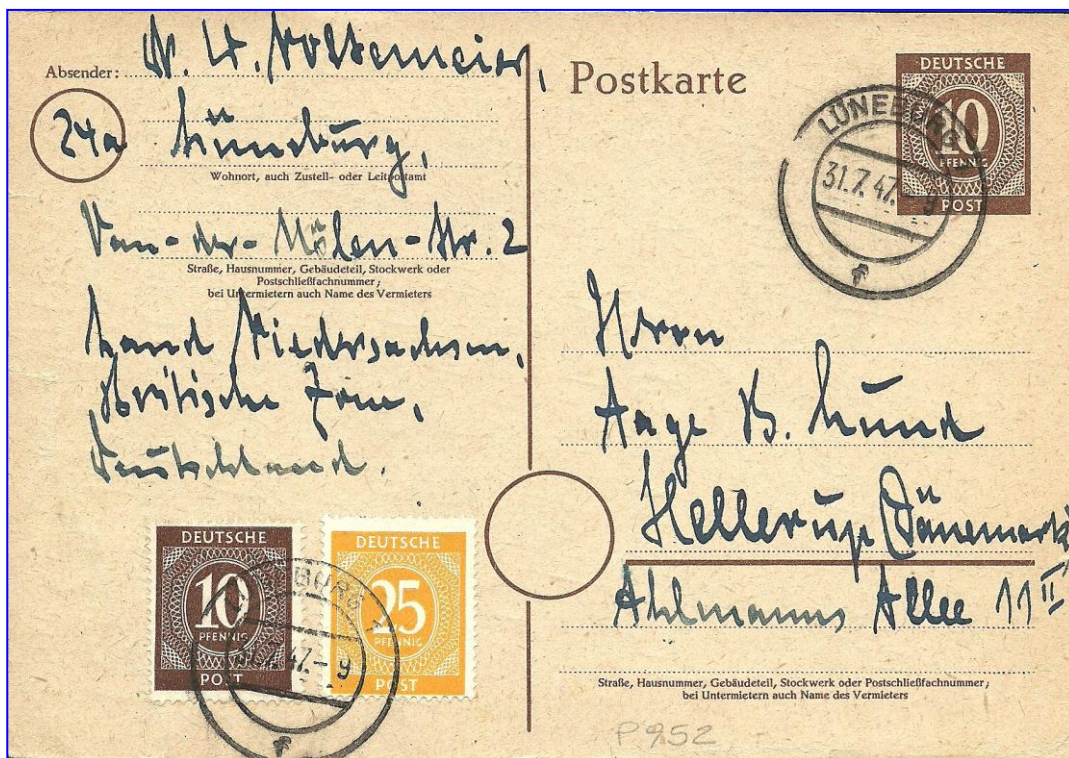 Absender: W. H. Vottemeier,
24a Lüneburg,
Wohnort, auch Zustell- oder Leitpostamt
Van-der-Mölen-Str. 2
Straße, Hausnummer, Gebäudeteil, Stockwerk oder
Postschließfachnummer;
bei Untermietern auch Name des Vermieters
Land Niedersachsen,
Britische Zone,
Deutschland.
DEUTSCHE
10
PFENNIG
POST
DEUTSCHE
25
PFENNIG
POST
47.- 9
f
Postkarte
DEUTSCHE
10
PFENNIG
POST
LÜNEBURG
31.7.47.- 9
f
Herrn
Aage B. Lund
Hellerup (Dänemark
Ahlmanns Allee 11 II
Straße, Hausnummer, Gebäudeteil, Stockwerk oder Postschließfachnummer;
bei Untermietern auch Name des Vermieters
P 952